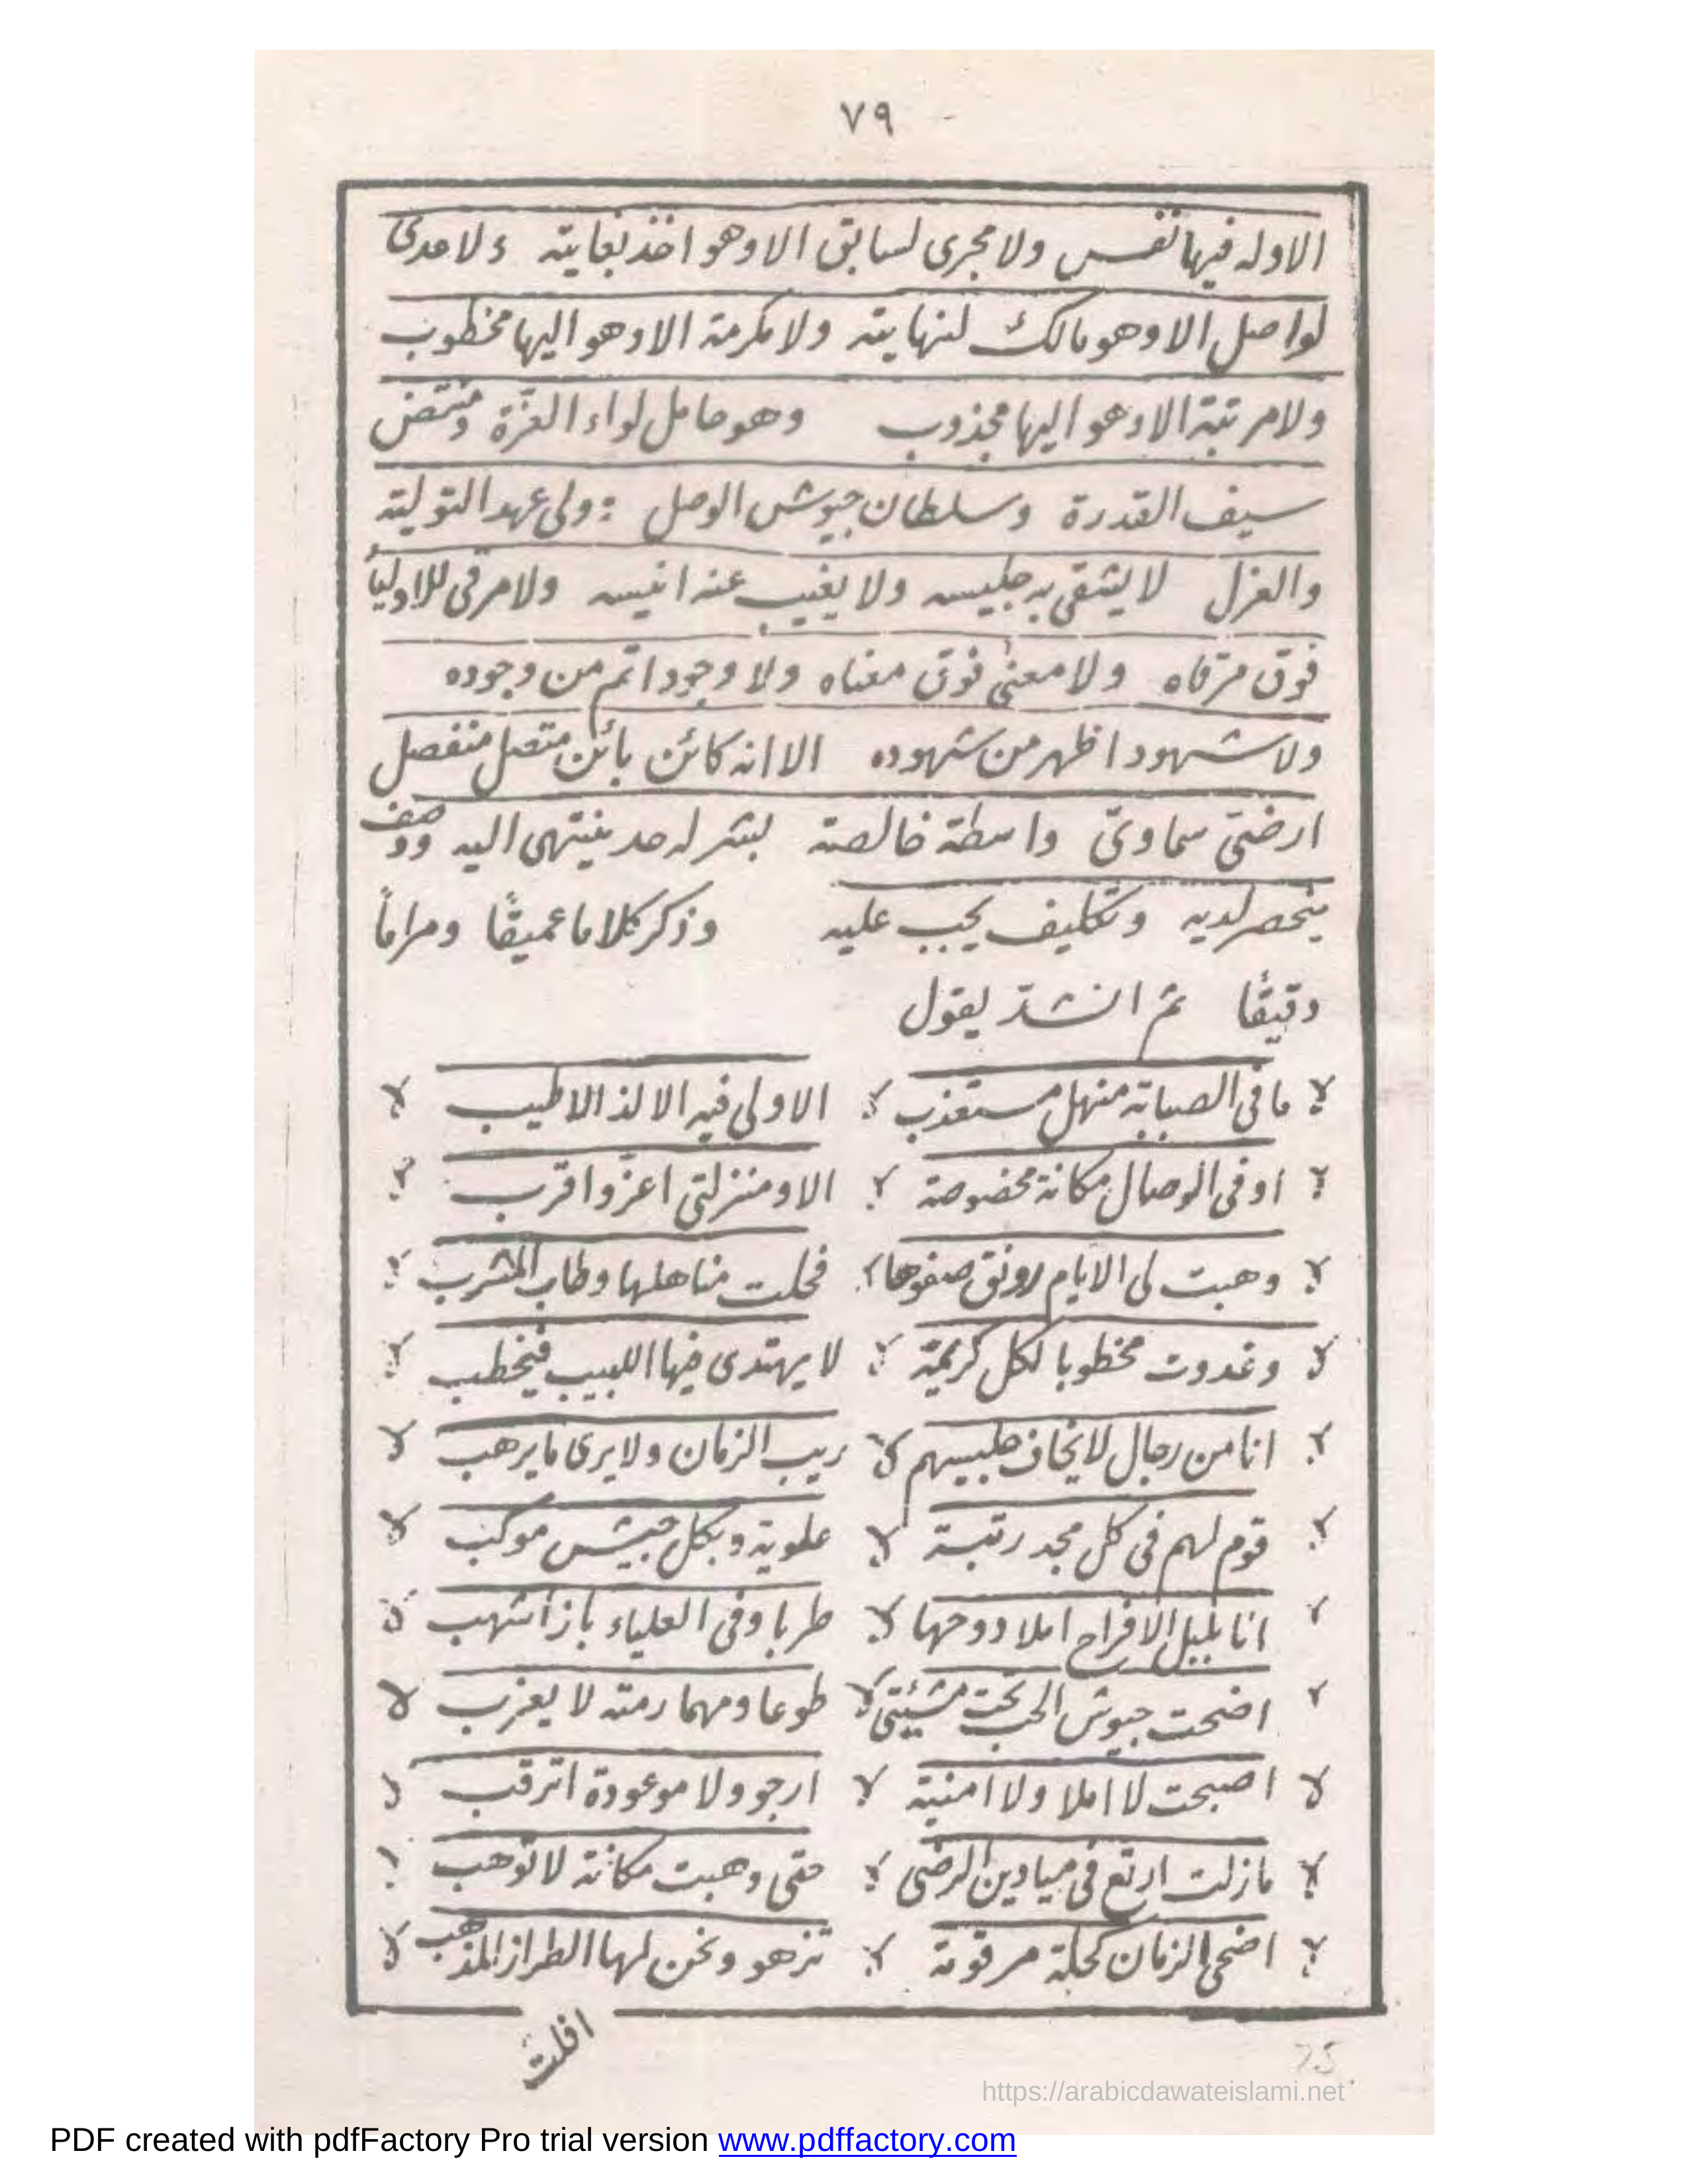 ٧٩
الاوله فيها نفس ولا مجرى لسابق الا وهو اخذ بغايته ولا مدى
لواصل الا وهو مالك لنهايته ولا مكرمة الا وهو اليها مخطوب
ولا مرتبة الا وهو اليها مجذوب وهو حامل لواء العزّة ومنتض
سيف القدرة وسلطان جيوش الوصل ؛ ولى عهد التولية
والعزل لا يشقى به جليسه ولا يغيب عنه انيسه ولا مرقى للاولياء
فوق مرقاه ولا معنى فوق معناه ولا وجود اتم من وجوده
ولا شهود اظهر من شهوده الا انه كائن بائن متصل منفصل
ارضىّ سماوىّ واسطة خالصة لبشر له حد ينتهى اليه ووصف
ينحصر لديه وتكليف يجب عليه وذكر كلاما عميقًا ومراماً
دقيقًا ثم انشد يقول
ما فى الصبابة منهل مستعذب الا ولى فيه الالذ الاطيب
او فى الوصال مكانة مخصوصة الا ومنزلتى اعزّ واقرب
وهبت لى الايام رونق صفوها فحلت مناهلها وطاب المشرب
وغدوت مخطوبا لكل كريمة لا يهتدى فيها اللبيب فيخطب
انا من رجال لا يخاف جليسهم ريب الزمان ولا يرى ما يرهب
قوم لهم فى كل مجد رتبة علوية وبكل جيش موكب
انا بلبل الافراح املا دوحها طربا وفى العلياء باز اشهب
اضحت جيوش الحب تحت مشيئتى طوعا ومهما رمته لا يعزب
اصبحت لا املا ولا امنية ارجو ولا موعودة اترقب
مازلت ارتع فى ميادين الرضى حتى وهبت مكانة لا توهب
اضحى الزمان كحلة مرقومة تزهو ونحن لها الطراز المذهب
افلت
25
https://arabicdawateislami.net
PDF created with pdfFactory Pro trial version www.pdffactory.com